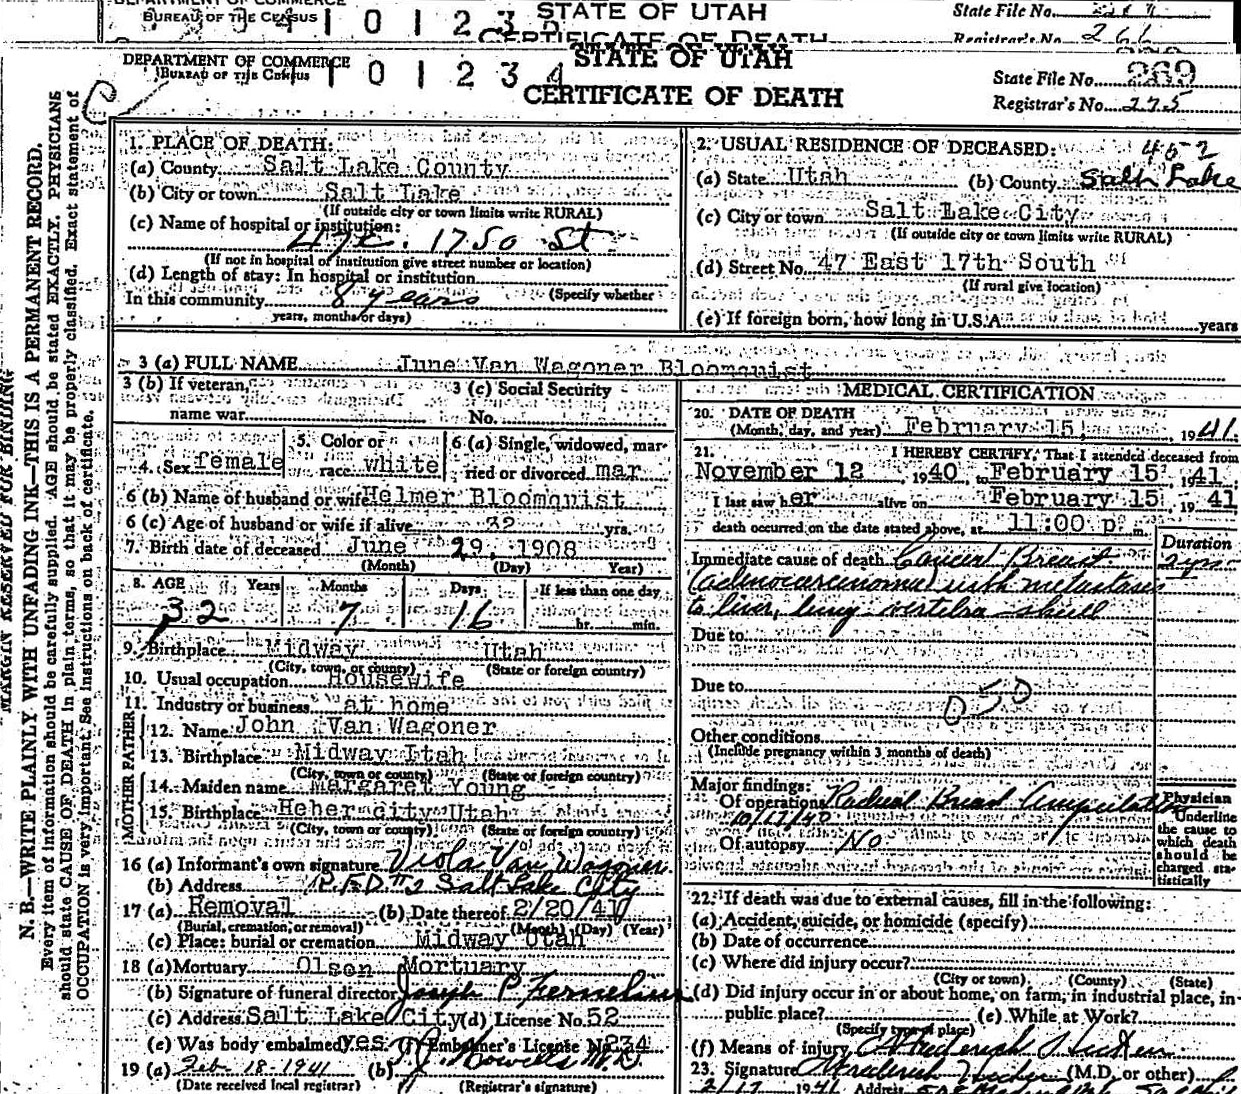 DEPARTMENT OF COMMERCE
BUREAU OF THE CENSUS
1 0 1 2 3
STATE OF UTAH
CERTIFICATE OF DEATH
State File No.
Registrar's No. 266
DEPARTMENT OF COMMERCE
BUREAU OF THE CENSUS
1 0 1 2 3 4
STATE OF UTAH
CERTIFICATE OF DEATH
State File No. 269
Registrar's No. 275
MARGIN RESERVED FOR BINDING
N. B.—WRITE PLAINLY WITH UNFADING INK—THIS IS A PERMANENT RECORD.
Every item of information should be carefully supplied. AGE should be stated EXACTLY. PHYSICIANS
should state CAUSE OF DEATH in plain terms, so that it may be properly classified. Exact statement of
OCCUPATION is very important. See instructions on back of certificate.
1. PLACE OF DEATH:
(a) County Salt Lake County
(b) City or town Salt Lake
(If outside city or town limits write RURAL)
(c) Name of hospital or institution:
47 E. 17 So St
(If not in hospital or institution give street number or location)
(d) Length of stay: In hospital or institution
In this community 8 years (Specify whether
years, months or days)
2. USUAL RESIDENCE OF DECEASED: 452
(a) State Utah (b) County Salt Lake
(c) City or town Salt Lake City
(If outside city or town limits write RURAL)
(d) Street No. 47 East 17th South
(If rural give location)
(e) If foreign born, how long in U.S.A. years
3 (a) FULL NAME June Van Wagoner Bloomquist
3 (b) If veteran, name war
3 (c) Social Security No.
4. Sex female
5. Color or race white
6 (a) Single, widowed, married or divorced mar.
6 (b) Name of husband or wife Helmer Bloomquist
6 (c) Age of husband or wife if alive 32 yrs.
7. Birth date of deceased June 29, 1908
(Month) (Day) Year)
8. AGE Years Months Days If less than one day
32 7 16 hr. min.
9. Birthplace Midway Utah
(City, town, or county) (State or foreign country)
10. Usual occupation Housewife
11. Industry or business at home
FATHER
12. Name John Van Wagoner
13. Birthplace Midway Utah
(City, town or county) (State or foreign country)
MOTHER
14. Maiden name Margaret Young
15. Birthplace Heber city Utah
(City, town or county) (State or foreign country)
16 (a) Informant's own signature Viola Van Wagoner
(b) Address R.F.D #2 Salt Lake City
17 (a) Removal (b) Date thereof 2/20/41
(Burial, cremation, or removal) (Month) (Day) (Year)
(c) Place: burial or cremation Midway Utah
18 (a) Mortuary Olson Mortuary
(b) Signature of funeral director Joseph P Fernelius
(c) Address Salt Lake City (d) License No. 52
(e) Was body embalmed yes (f) Embalmer's License No. 234
19 (a) Feb 18-1941 (b)
(Date received local registrar) (Registrar's signature)
MEDICAL CERTIFICATION
20. DATE OF DEATH
(Month, day, and year) February 15, 1941.
21. I HEREBY CERTIFY, That I attended deceased from
November 12 1940, to February 15 1941.
I last saw her alive on February 15 1941
death occurred on the date stated above, at 11:00 p. m.
Duration
Immediate cause of death Cancer Breast 2 yrs
(adenocarcinoma) with metastases
to liver, lung vertebra skull
Due to
Due to
050
Other conditions
(Include pregnancy within 3 months of death)
Major findings:
Of operations Radical Breast Amputation
10/17/40
Of autopsy No
Physician
Underline
the cause to
which death
should be
charged sta-
tistically
22. If death was due to external causes, fill in the following:
(a) Accident, suicide, or homicide (specify)
(b) Date of occurrence
(c) Where did injury occur?
(City or town) (County) (State)
(d) Did injury occur in or about home, on farm, in industrial place, in
public place? (e) While at Work?
(Specify type of place)
(f) Means of injury
23. Signature (M.D. or other)
2/17 1941 Address